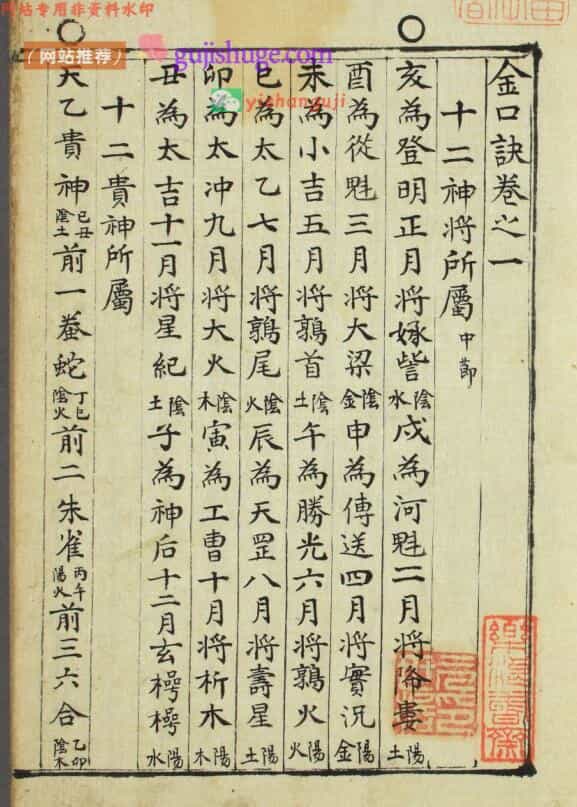 网站专用非资料水印
（网站推荐）
gujishuge.com
yishanguji
金口訣卷之一
十二神將所屬中節
亥為登明正月將娵訾陰水戌為河魁二月將降婁陽土
酉為從魁三月將大梁陰金申為傳送四月將實況陽金
未為小吉五月將鶉首陰土午為勝光六月將鶉火陽火
巳為太乙七月將鶉尾陰火辰為天罡八月將壽星陽土
卯為太冲九月將大火陰木寅為工曹十月將析木陽木
丑為太吉十一月將星紀陰土子為神后十二月玄枵枵陽水
十二貴神所屬
天乙貴神己丑陰土前一螣蛇丁巳陰火前二朱雀丙午陽火前三六合乙卯陰木